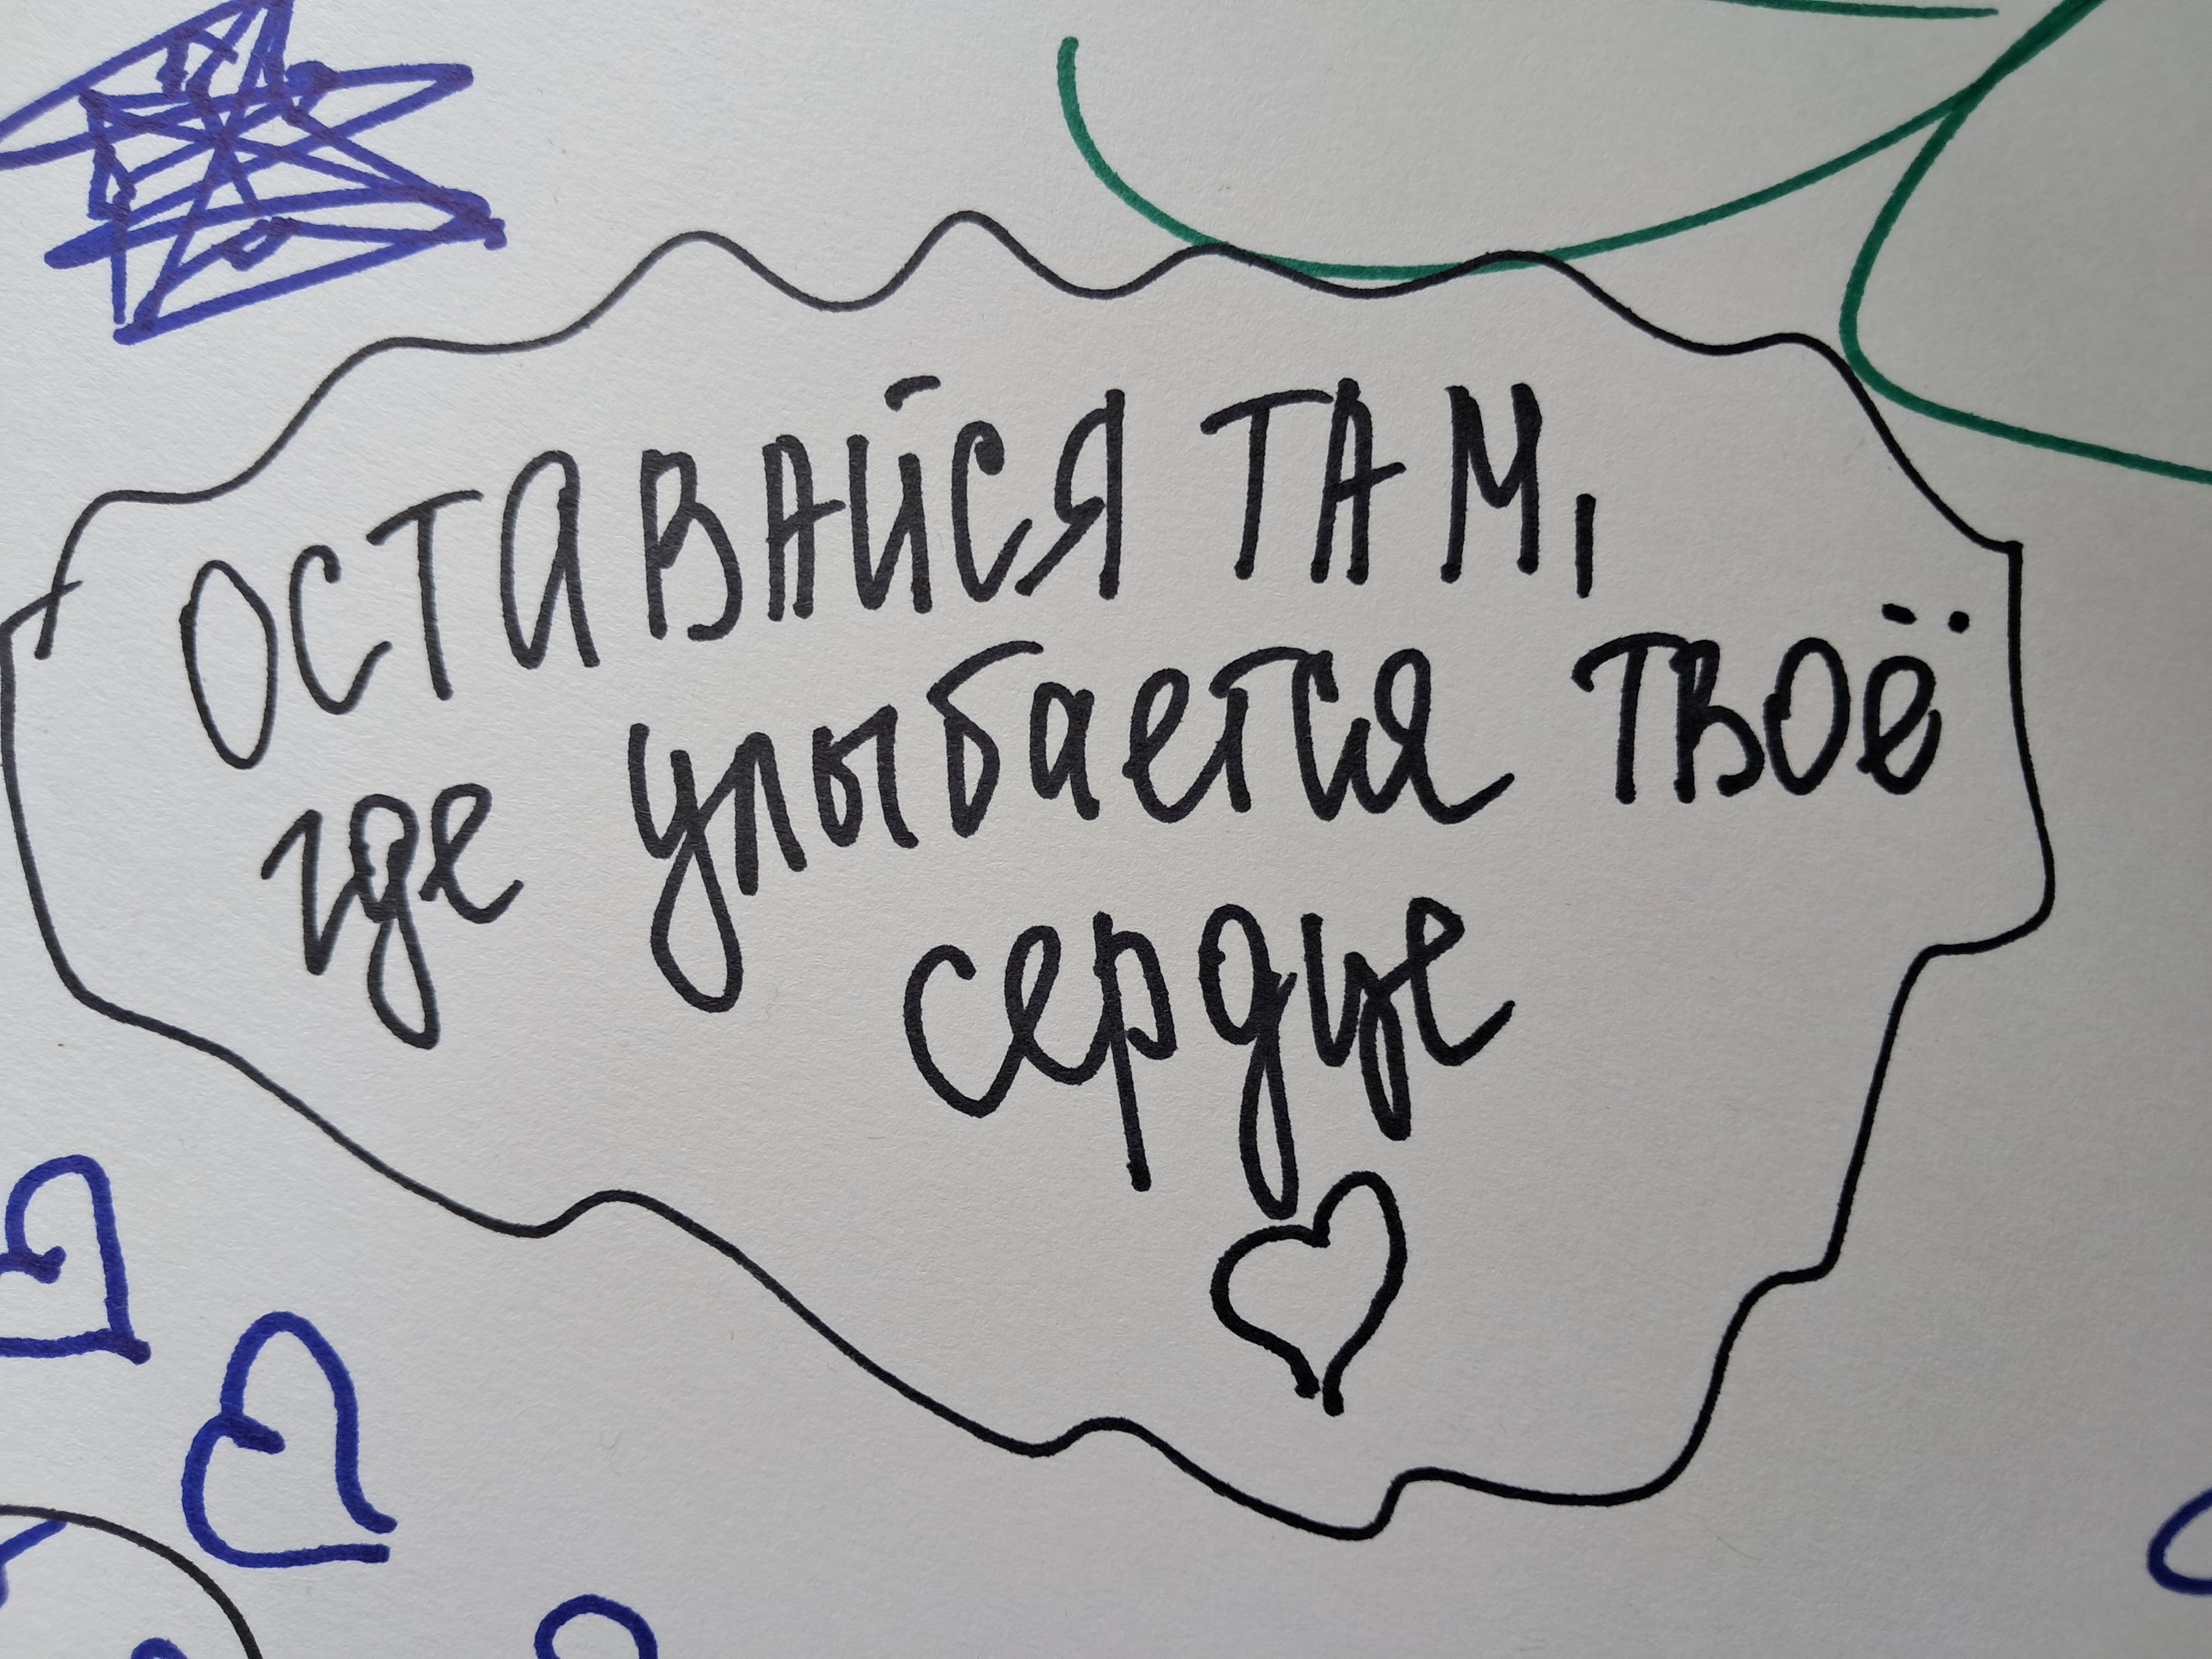 ОСТАВАЙСЯ ТАМ,
где улыбается твоё
сердце